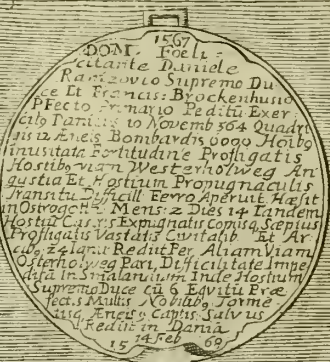 1567
DOM. Foeli:
citante Daniele
Ranzovio Supremo Du
ce Et Francis: Brockenhusio
PFecto Prmario Peditū Exer
citꝫ Daniꝫ 10 Novemb 564 Quadri
gis 12 Æneis Bombardis 6000 Hoibꝫ
inusitata Fortitudine Profligatis
Hostibꝫ viam Westerholweg An
gustia Et Hostium Propugnaculis
Transitu Difficill Ferro Aperuit Hæsit
in Ostrogoth: Mens: 2 Dies 14 Tandem
Hostiū Castris Expugnatis Comisꝫ Sæpius
Profligatis Vastatis Civitatib Et Ar
cibꝫ 24 Ianu Redit Per Aliam Viam
Osterholweg Pari Difficultate Impe
dita In Smalandiam Inde Hostium
Supremo Duce cū 6 Equitū Præ
fectis Multis Nobilibꝫ Torme
tisq Æneis 9 Captis Salvus
Rediit in Dania
15 14 Feb 68